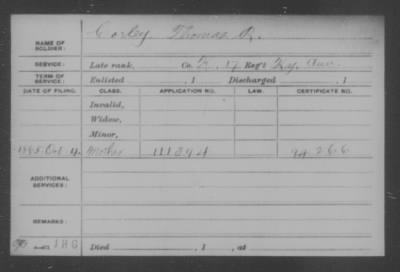 NAME OF SOLDIER: Corley Thomas R.
SERVICE: Late rank, Co. K. 17 Reg't Ky. Cav.
TERM OF SERVICE: Enlisted , 1 Discharged , 1
DATE OF FILING. CLASS. APPLICATION NO. LAW. CERTIFICATE NO.
Invalid,
Widow,
Minor,
Oct. Mother 111394
ADDITIONAL SERVICES:
REMARKS:
Died , 1 , at